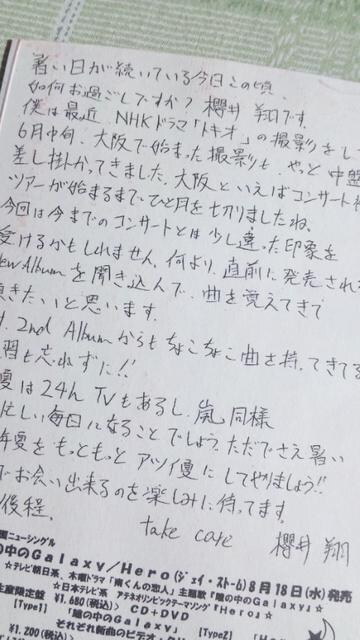 暑い日が続いている今日この頃。
如何お過ごしですか? 櫻井 翔です
僕は最近 NHKドラマ「トキオ」の撮影をして
6月中旬、大阪で始まった撮影も、やっと中盤
差し掛かってきました。大阪といえばコンサート
ツアーが始まるまで、ひと月を切りましたね。
今回は今までのコンサートとは少し違った印象を
受けるかもしれません。何より、直前に発売され
new Albumを聞き込んで、曲を覚えてきて
頂きたいと思います。
2nd Albumからもちょこちょこ曲を持ってきてる
習も忘れずに!!
夏は24h TVもあるし、嵐同様
忙しい毎日になることでしょう。ただでさえ暑い
年夏をもっともっとアツイ夏にしてやりましょう!!
お会い出来るのを楽しみに待ってます。
後程。
take care 櫻井 翔
ニューシングル
の中のGalaxy/Hero(ジェイ・ストーム)8月18日(水)発売
☆テレビ朝日系、木曜ドラマ「南くんの恋人」主題歌「瞳の中のGalaxy」☆
☆日本テレビ系 アテネオリンピックテーマソング「Hero」☆
生産限定盤 ¥1,680(税込)〉 CD+DVD
【Type1】 「瞳の中のGalaxy」
【Type2】
¥1,200(税込)〉
それぞれ新曲のビデオ・ク